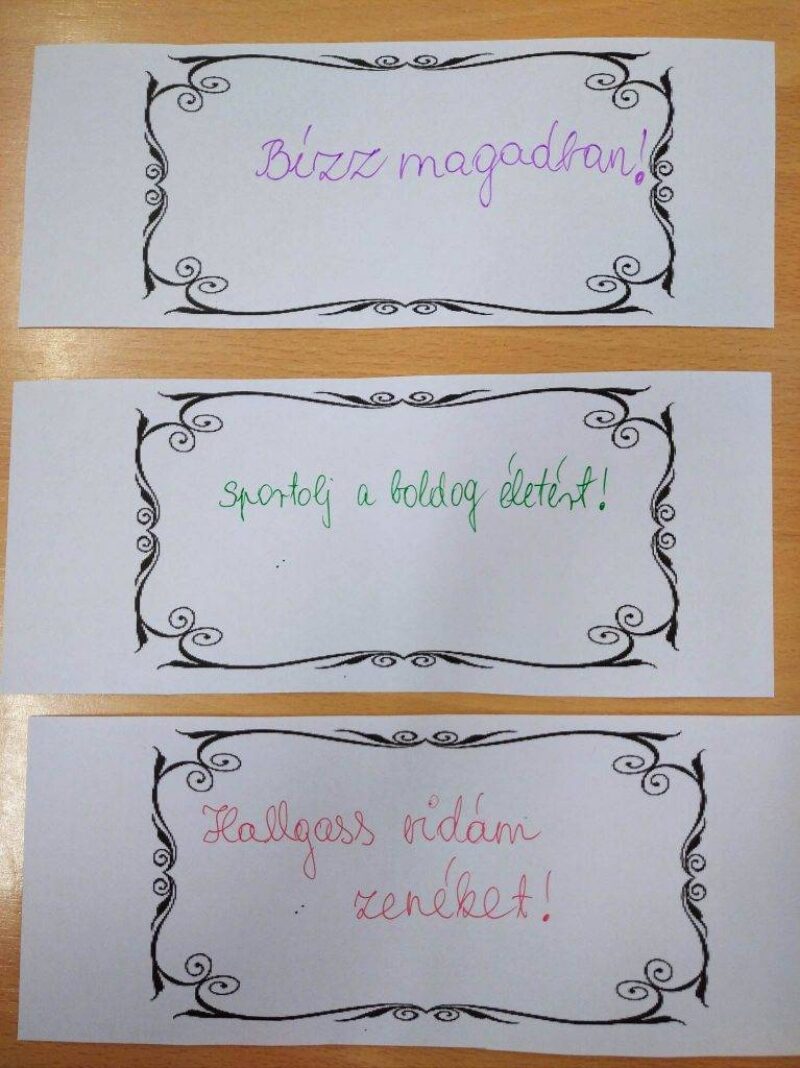 Bízz magadban!
sportolj a boldog életért!
Hallgass vidám
zenéket!